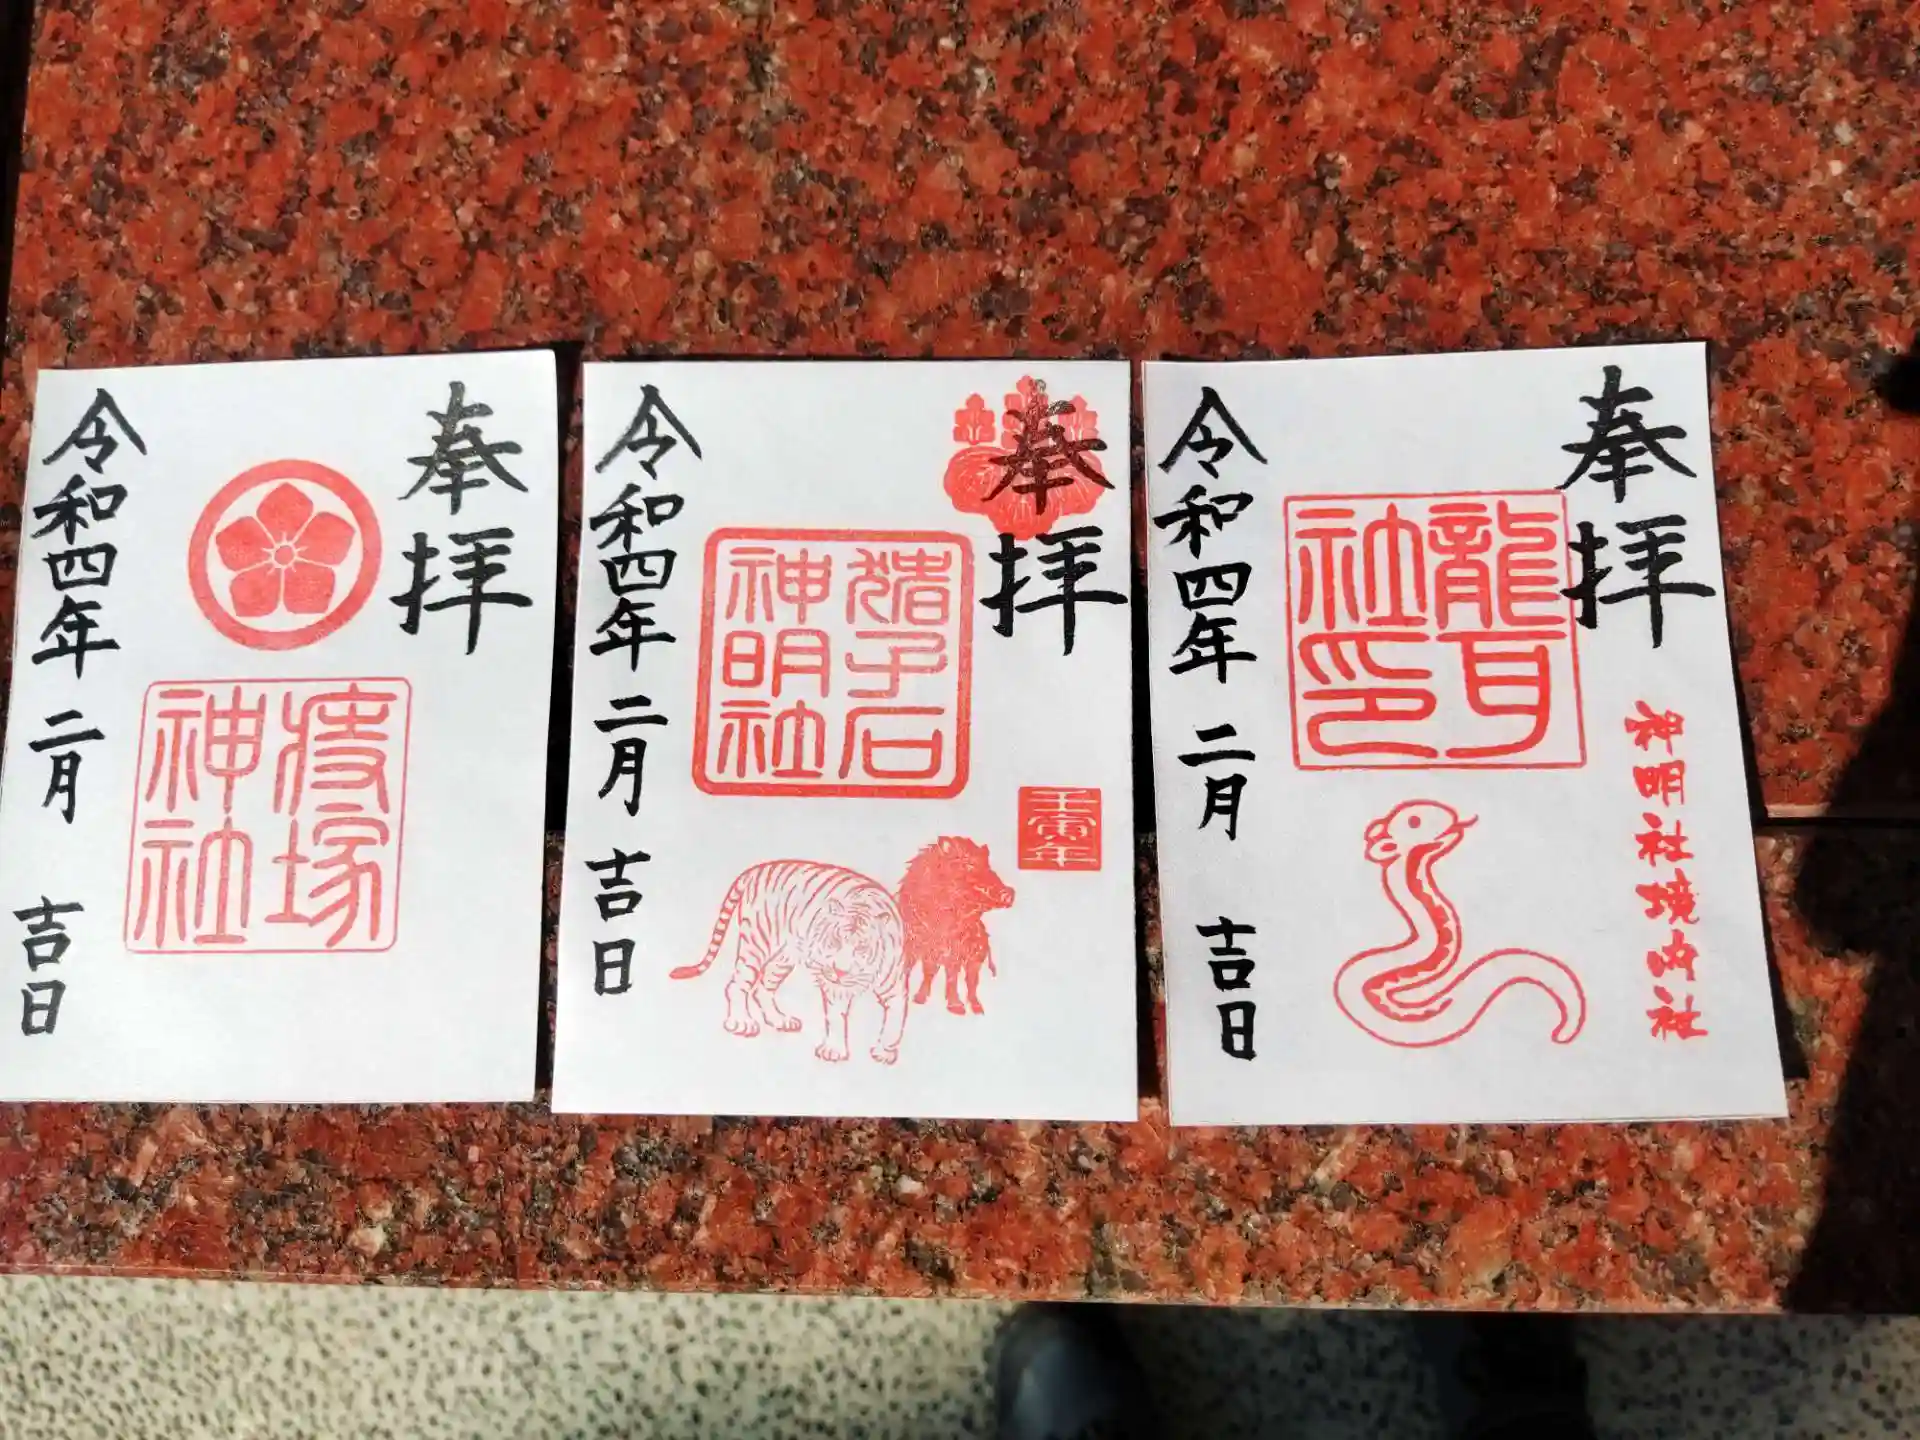 奉拝
痔塚
神社
令和四年 二月 吉日
奉拝
猪子石
神明社
壬寅年
令和四年 二月 吉日
奉拝
神明社境内社
龍耳
社印
令和四年 二月 吉日